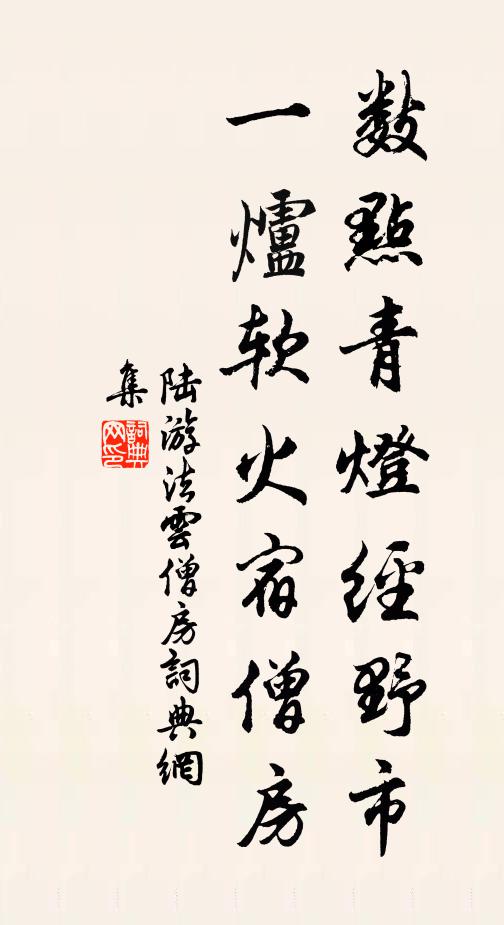 数點青燈經野市
一爐软火宿僧房
陆游法雲僧房詞典網
集
詞典
网印